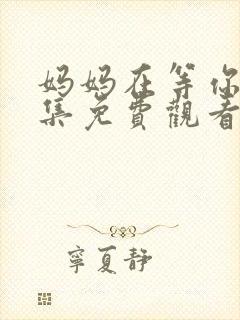 妈妈在等你
集免費觀看
寧夏静